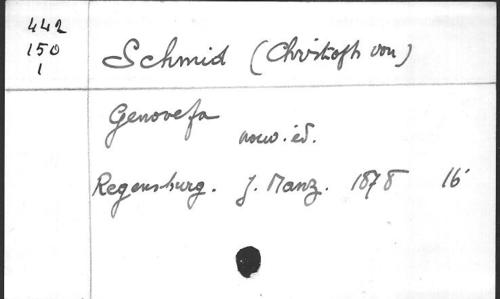 442
150
1
Schmid (Christoph von)
Genovefa
nouv. éd.
Regensburg. J. Manz. 1878 16°